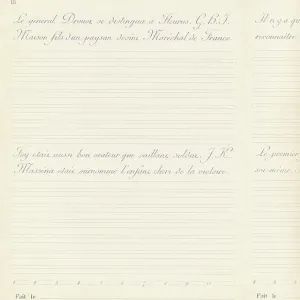 Le général Drouot se distingua à Fleurus. G. H. I.
Maison fils d'un paysan devint Maréchal de France.
Foy était aussi bon orateur que vaillant soldat. J. K.
Masséna était surnommé l'enfant chéri de la victoire.
Fait le
Il n'y a qu
reconnaitre
Le premier
soi même.
Fait le